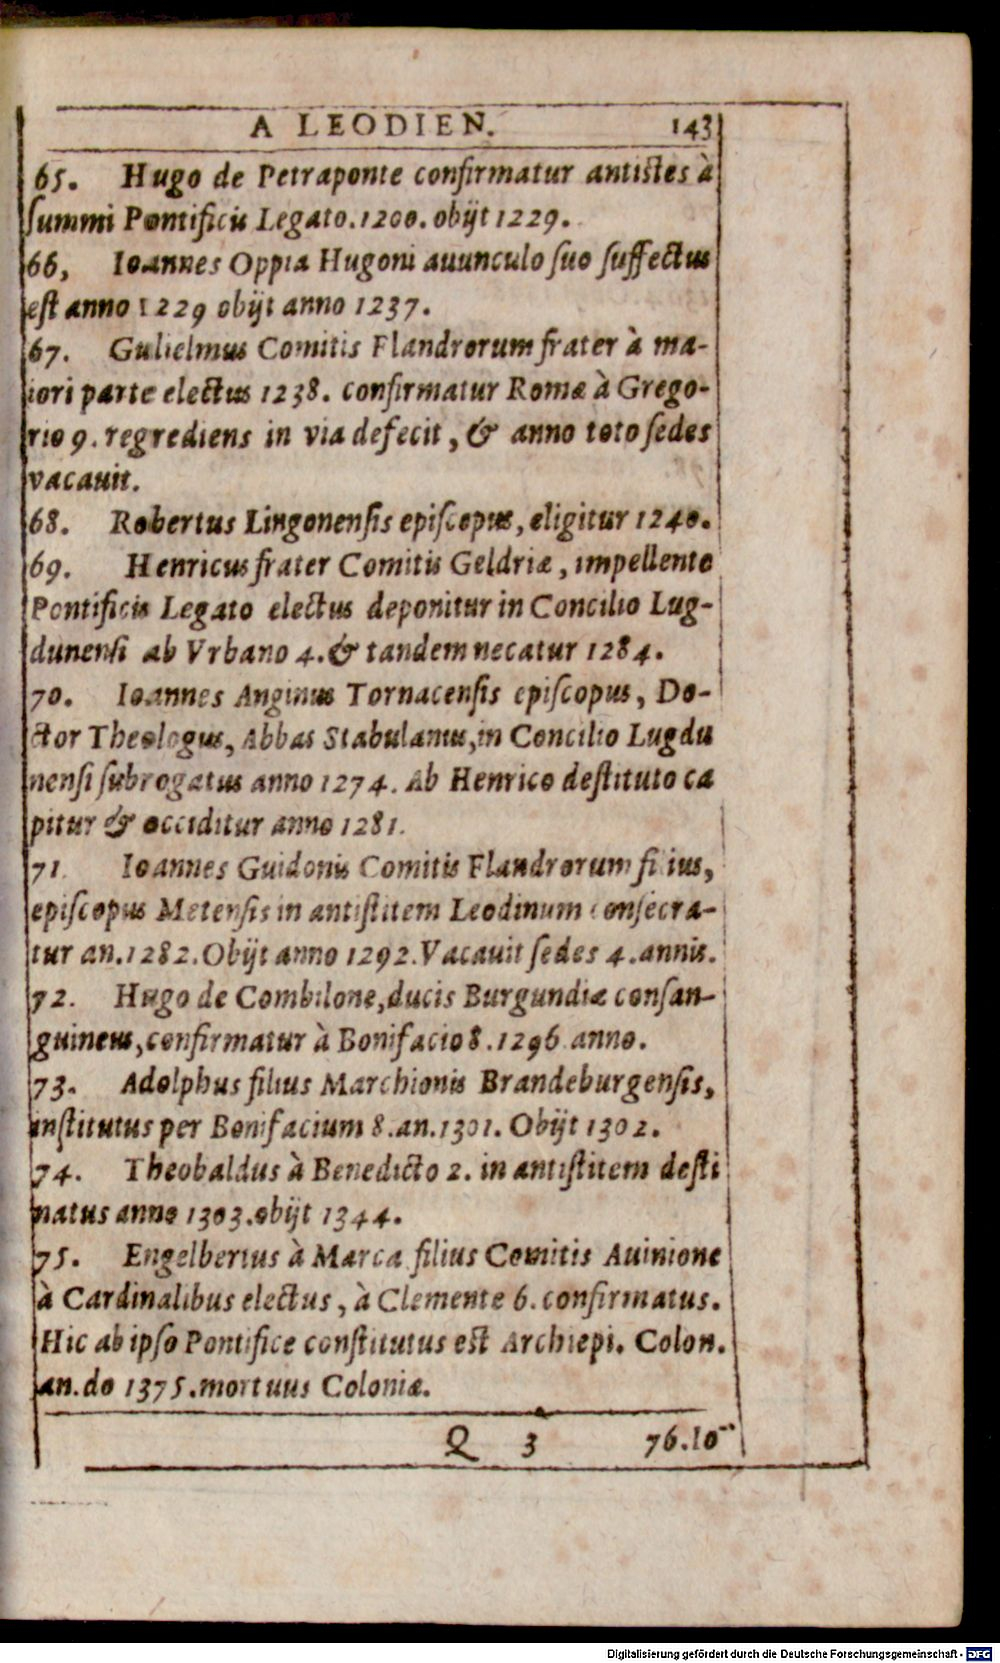 A LEODIEN. 143
65. Hugo de Petraponte confirmatur antistes à
ſummi Pontificis Legato. 1200. obijt 1229.
66, Ioannes Oppia Hugoni auunculo ſuo ſuffectus
eſt anno 1229 obijt anno 1237.
67. Gulielmus Comitis Flandrorum frater à ma-
iori parte electus 1238. confirmatur Romæ à Grego-
rio 9. regrediens in via defecit, & anno toto ſedes
vacauit.
68. Robertus Lingonenſis epiſcopus, eligitur 1240.
69. Henricus frater Comitis Geldriæ, impellente
Pontificis Legato electus deponitur in Concilio Lug-
dunenſi ab Vrbano 4. & tandem necatur 1284.
70. Ioannes Anginus Tornacenſis epiſcopus, Do-
ctor Theologus, Abbas Stabulanus, in Concilio Lugdu
nenſi ſubrogatus anno 1274. Ab Henrico deſtituto ca
pitur & occiditur anno 1281.
71. Ioannes Guidonis Comitis Flandrorum filius,
epiſcopus Metenſis in antiſtitem Leodinum conſecra-
tur an. 1282. Obijt anno 1292. Vacauit ſedes 4. annis.
72. Hugo de Combilone, ducis Burgundiæ conſan-
guineus, confirmatur à Bonifacio 8. 1296 anno.
73. Adolphus filius Marchionis Brandeburgenſis,
inſtitutus per Bonifacium 8. an. 1301. Obijt 1302.
74. Theobaldus à Benedicto 2. in antiſtitem deſti
natus anno 1303. obijt 1344.
75. Engelbertus à Marca filius Comitis Auinione
à Cardinalibus electus, à Clemente 6. confirmatus.
Hic ab ipſo Pontifice conſtitutus eſt Archiepi. Colon.
an. do 1375. mortuus Coloniæ.
Q 3 76. Io-
Digitalisierung gefördert durch die Deutsche Forschungsgemeinschaft - DFG